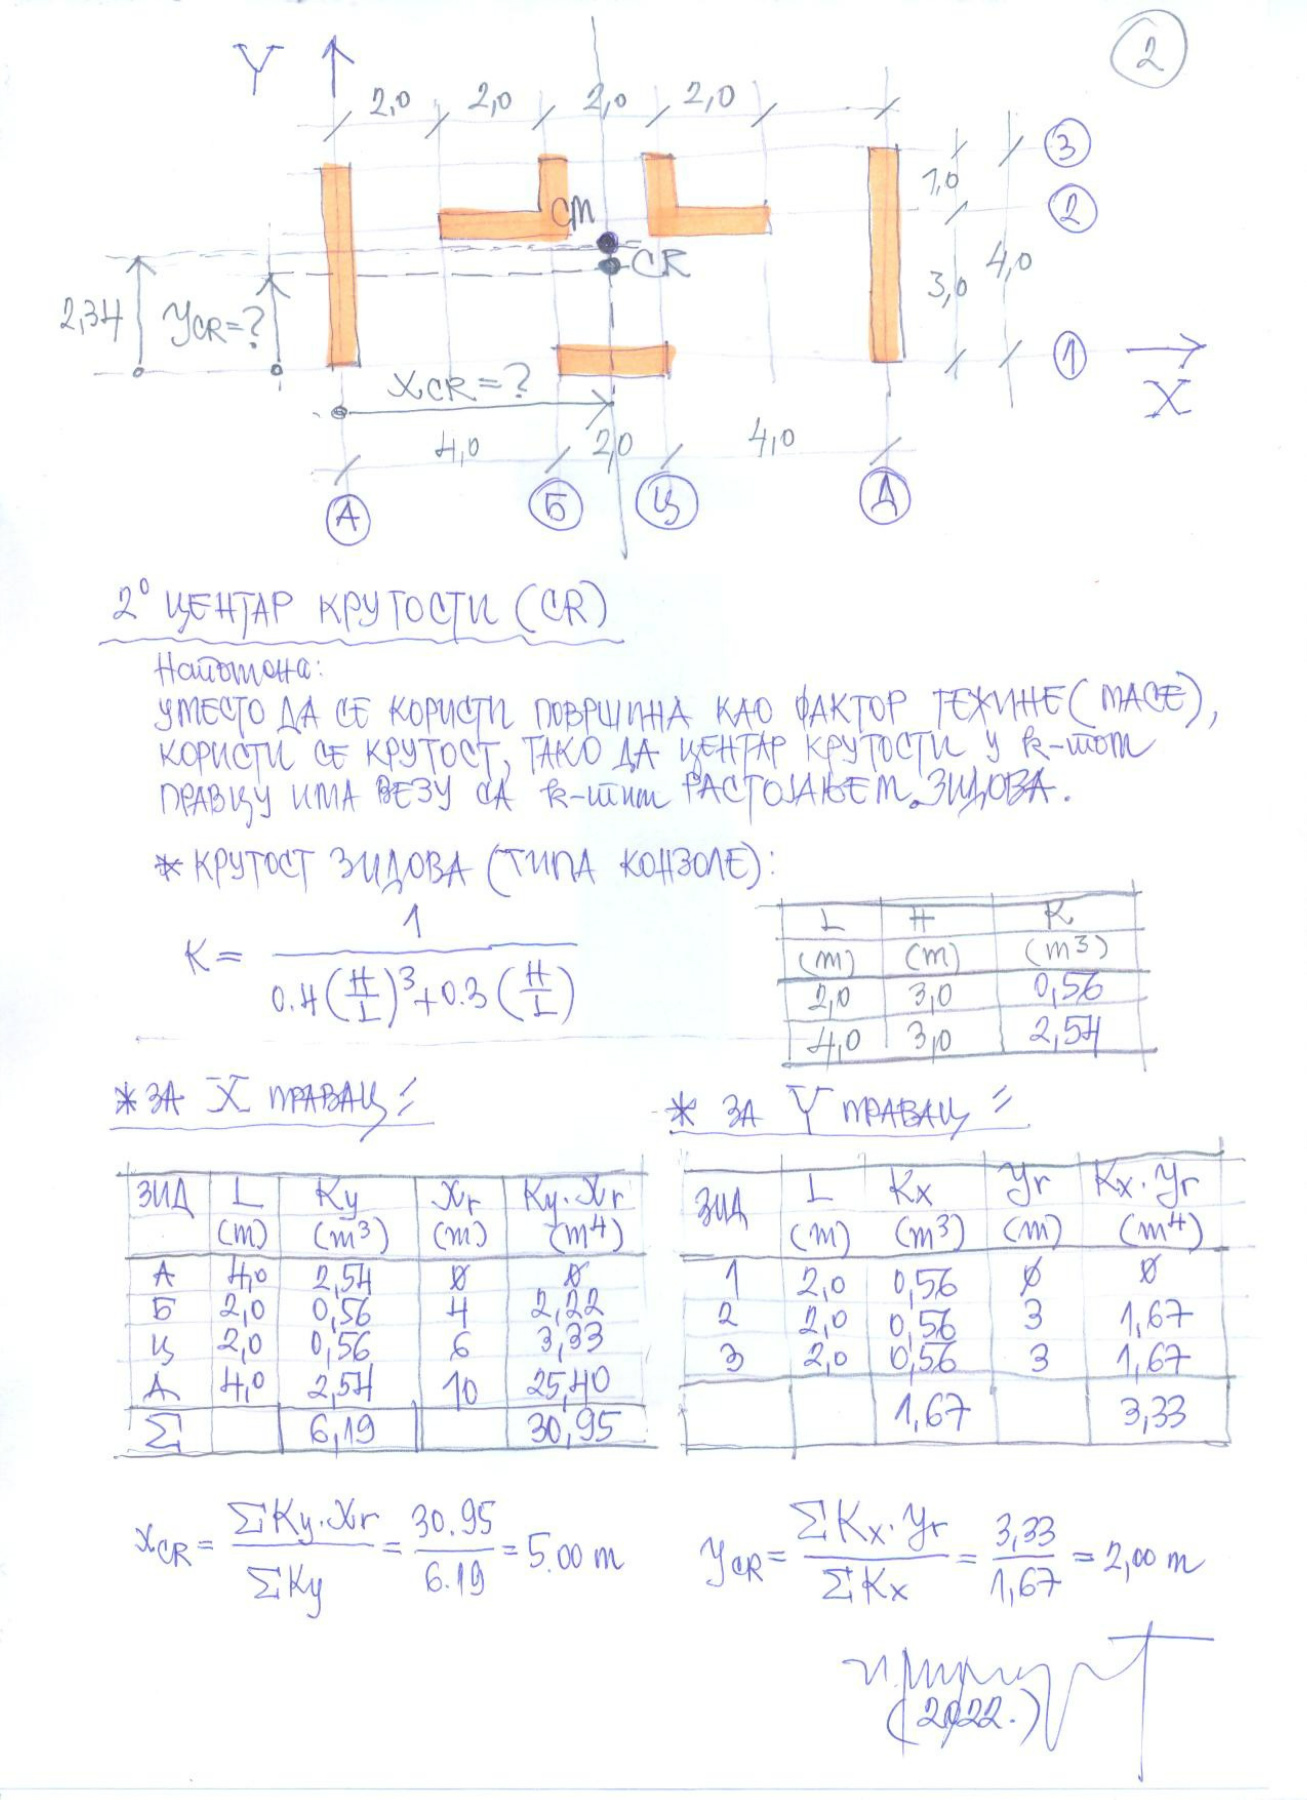 2
Y
2,0 2,0 2,0 2,0
3
1,0
2
CM
CR
3,0 4,0
2,34
УCR=?
1
X
XCR=?
4,0 2,0 4,0
А Б Ц Д
2° ЦЕНТАР КРУТОСТИ (CR)
Напомена:
УМЕСТО ДА СЕ КОРИСТИ ПОВРШИНА КАО ФАКТОР ТЕЖИНЕ (МАСЕ),
КОРИСТИ СЕ КРУТОСТ, ТАКО ДА ЦЕНТАР КРУТОСТИ У k-том
ПРАВЦУ ИМА ВЕЗУ СА k-тим РАСТОЈАЊЕМ ЗИДОВА.
* КРУТОСТ ЗИДОВА (ТИПА КОНЗОЛЕ):
K = 1 / 0.4 (H/L)³ + 0.3 (H/L)
L H K
(m) (m) (m³)
2,0 3,0 0,56
4,0 3,0 2,54
* ЗА X ПРАВАЦ:
ЗИД L Ky Xr Ky·Xr
(m) (m³) (m) (m⁴)
А 4,0 2,54 0 0
Б 2,0 0,56 4 2,22
Ц 2,0 0,56 6 3,33
Д 4,0 2,54 10 25,40
Σ 6,19 30,95
XCR = ΣKy·Xr / ΣKy = 30.95 / 6.19 = 5.00 m
* ЗА Y ПРАВАЦ:
ЗИД L Kx Yr Kx·Yr
(m) (m³) (m) (m⁴)
1 2,0 0,56 0 0
2 2,0 0,56 3 1,67
3 2,0 0,56 3 1,67
1,67 3,33
YCR = ΣKx·Yr / ΣKx = 3,33 / 1,67 = 2,00 m
(2022.)